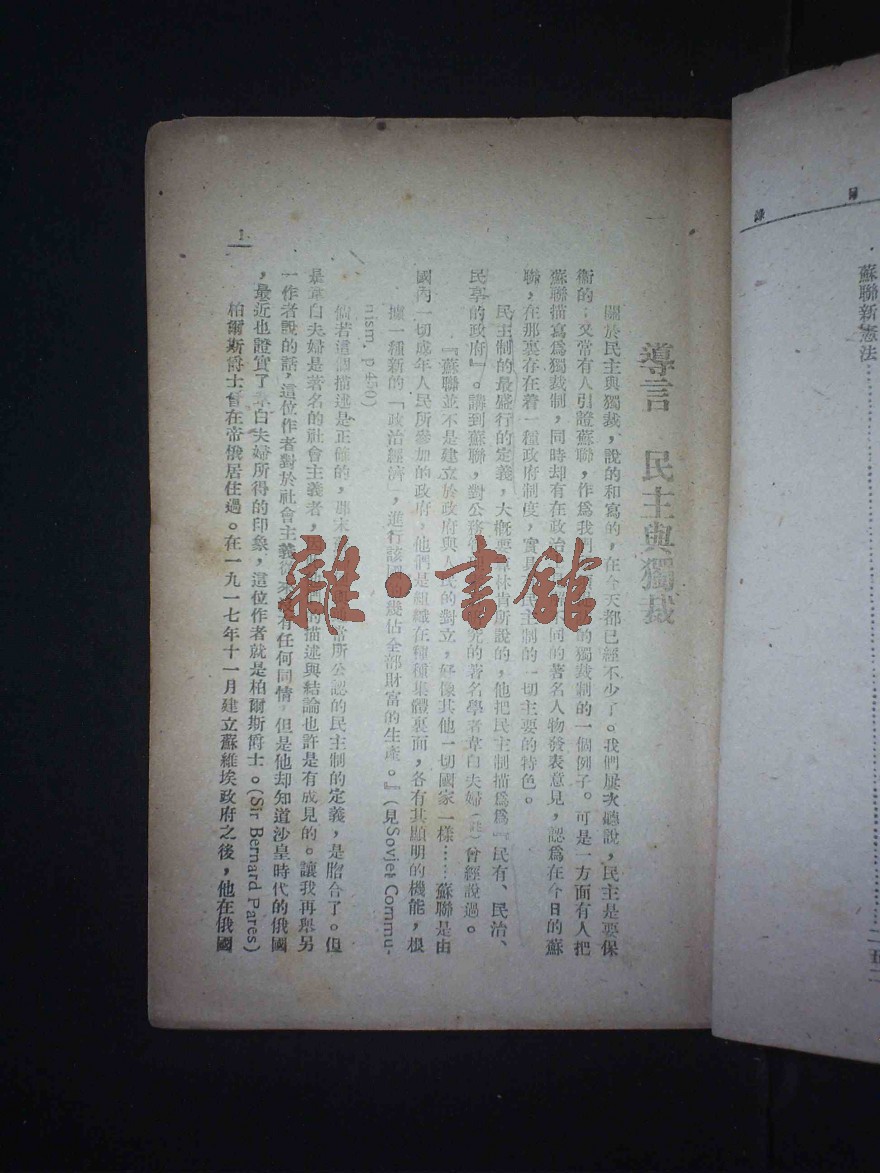 目錄
蘇聯新憲法……………一五二
導言 民主與獨裁
關於民主與獨裁，說的和寫的，在今天都已經不少了。我們屢次聽說，民主是要保
衛的；又常有人引證蘇聯，作為我的獨裁制的一個例子。可是一方面有人把
蘇聯描寫為獨裁制，同時却有在政治同的著名人物發表意見，認為在今日的蘇
聯，在那裏存在着一種政府制度，實具民主制的一切主要的特色。
民主制的最盛行的定義，大概要算林肯所說的，他把民主制描寫為『民有、民治、
民享的政府』。講到蘇聯，對公務究的著名學者韋白夫婦（註）曾經說過。
『蘇聯並不是建立於政府與的對立，好像其他一切國家一樣……蘇聯是由
國內一切成年人民所參加的政府，他們是組織在種種集體裏面，各有其顯明的機能，根
據一種新的「政治經濟」，進行該國幾佔全部財富的生產。』（見Soviet Commu-
nism, p.450）
倘若這個描述是正確的，那末常所公認的民主制的定義，是脗合了。但
是韋白夫婦是著名的社會主義者，們的描述與結論也許是有成見的。讓我再舉另
一作者說的話，這位作者對於社會主義從來沒有任何同情，但是他却知道沙皇時代的俄國
，最近也證實了韋白夫婦所得的印象，這位作者就是柏爾斯爵士。(Sir Bernard Pares)
柏爾斯爵士曾在帝俄居住過。在一九一七年十一月建立蘇維埃政府之後，他在俄國
1
雜·書館